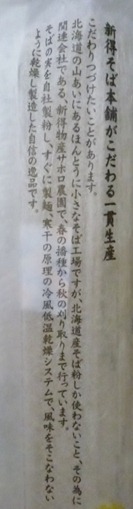 新得そば本舗がこだわる一貫生産
こだわりつづけたいことがあります。
北海道の山あいにあるほんとうに小さなそば工場ですが、北海道産そば粉しか使わないこと、その為に
関連会社である、新得物産サホロ農園で、春の播種から秋の刈り取りまで行っています。
そばの実を自社製粉し、すぐに製麺、寒干の原理の冷風低温乾燥システムで、風味をそこなわない
ように乾燥し製造した自信の逸品です。